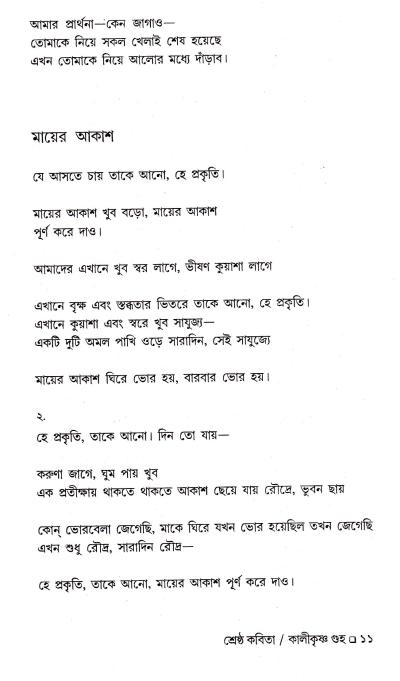 আমার প্রার্থনা—কেন জাগাও—
তোমাকে নিয়ে সকল খেলাই শেষ হয়েছে
এখন তোমাকে নিয়ে আলোর মধ্যে দাঁড়াব।
মায়ের আকাশ
যে আসতে চায় তাকে আনো, হে প্রকৃতি।
মায়ের আকাশ খুব বড়ো, মায়ের আকাশ
পূর্ণ করে দাও।
আমাদের এখানে খুব স্বর লাগে, ভীষণ কুয়াশা লাগে
এখানে বৃক্ষ এবং স্তব্ধতার ভিতরে তাকে আনো, হে প্রকৃতি।
এখানে কুয়াশা এবং স্বরে খুব সাযুজ্য—
একটি দুটি অমল পাখি ওড়ে সারাদিন, সেই সাযুজ্যে
মায়ের আকাশ ঘিরে ভোর হয়, বারবার ভোর হয়।
২.
হে প্রকৃতি, তাকে আনো। দিন তো যায়—
করুণা জাগে, ঘুম পায় খুব
এক প্রতীক্ষায় থাকতে থাকতে আকাশ ছেয়ে যায় রৌদ্রে, ভুবন ছায়
কোন্ ভোরবেলা জেগেছি, মাকে ঘিরে যখন ভোর হয়েছিল তখন জেগেছি
এখন শুধু রৌদ্র, সারাদিন রৌদ্র—
হে প্রকৃতি, তাকে আনো, মায়ের আকাশ পূর্ণ করে দাও।
শ্রেষ্ঠ কবিতা / কালীকৃষ্ণ গুহ □ ১১